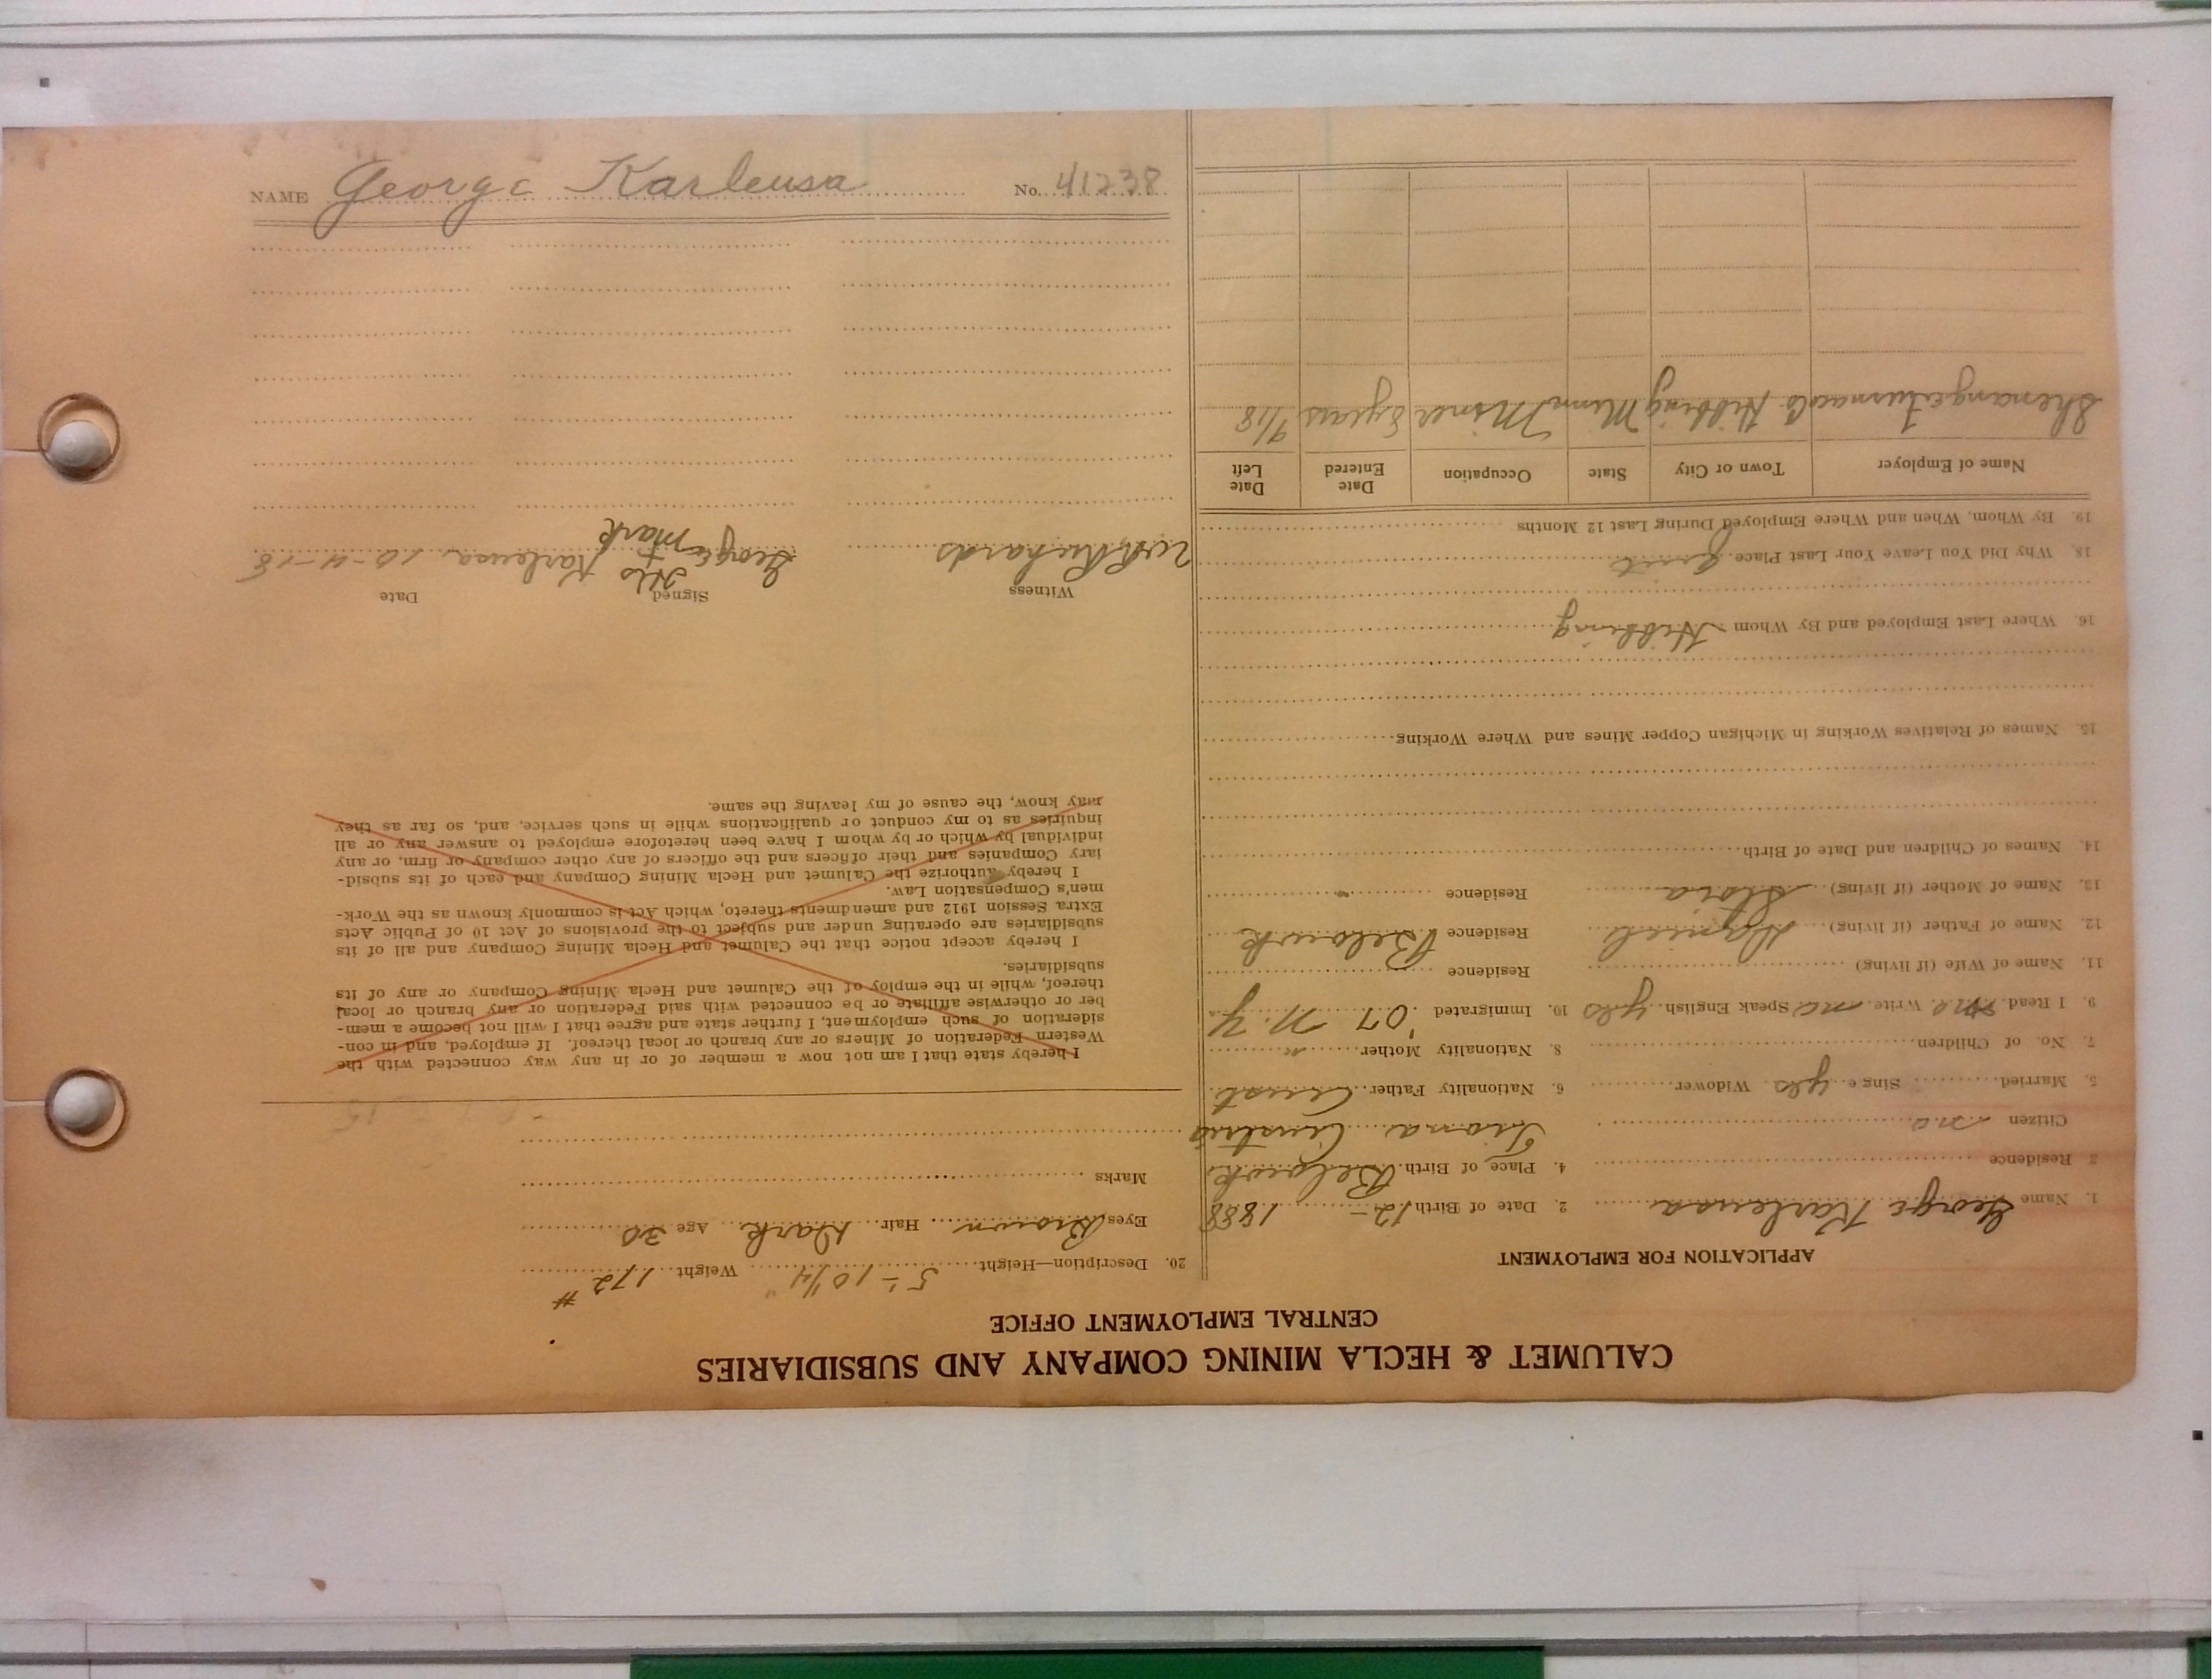 NAME George Karleusa No. 41238
CALUMET & HECLA MINING COMPANY AND SUBSIDIARIES
CENTRAL EMPLOYMENT OFFICE
APPLICATION FOR EMPLOYMENT
1. Name George Karleusa 2. Date of Birth 12 - 1888
3 Residence 4. Place of Birth
Citizen no Austria
5. Married Sing e yes Widower 6. Nationality Father Aust
7. No. of Children 8. Nationality Mother "
9. I Read no Write no Speak English yes 10. Immigrated '07 N.Y.
11. Name of Wife (if living) Residence
12. Name of Father (if living) Daniel Residence
13. Name of Mother (if living) Residence "
14. Names of Children and Date of Birth
15. Names of Relatives Working in Michigan Copper Mines and Where Working
16. Where Last Employed and By Whom Hibbing
18. Why Did You Leave Your Last Place quit
19. By Whom, When and Where Employed During Last 12 Months
Name of Employer Town or City State Occupation Date Entered Date Left
Hibbing Minn Miner 8 years 9/18
20. Description—Height 5'-10 1/4" Weight 172 #
Eyes Brown Hair Dark Age 30
Marks
I hereby state that I am not now a member of or in any way connected with the
Western Federation of Miners or any branch or local thereof. If employed, and in con-
sideration of such employment, I further state and agree that I will not become a mem-
ber or otherwise affiliate or be connected with said Federation or any branch or local
thereof, while in the employ of the Calumet and Hecla Mining Company or any of its
subsidiaries.
I hereby accept notice that the Calumet and Hecla Mining Company and all of its
subsidiaries are operating under and subject to the provisions of Act 10 of Public Acts
Extra Session 1912 and amendments thereto, which Act is commonly known as the Work-
men's Compensation Law.
I hereby authorize the Calumet and Hecla Mining Company and each of its subsid-
iary Companies and their officers and the officers of any other company or firm, or any
individual by which or by whom I have been heretofore employed to answer any or all
inquiries as to my conduct or qualifications while in such service, and, so far as they
may know, the cause of my leaving the same.
Witness Signed Date
His
Richards George + Karleusa 10-4-18
mark